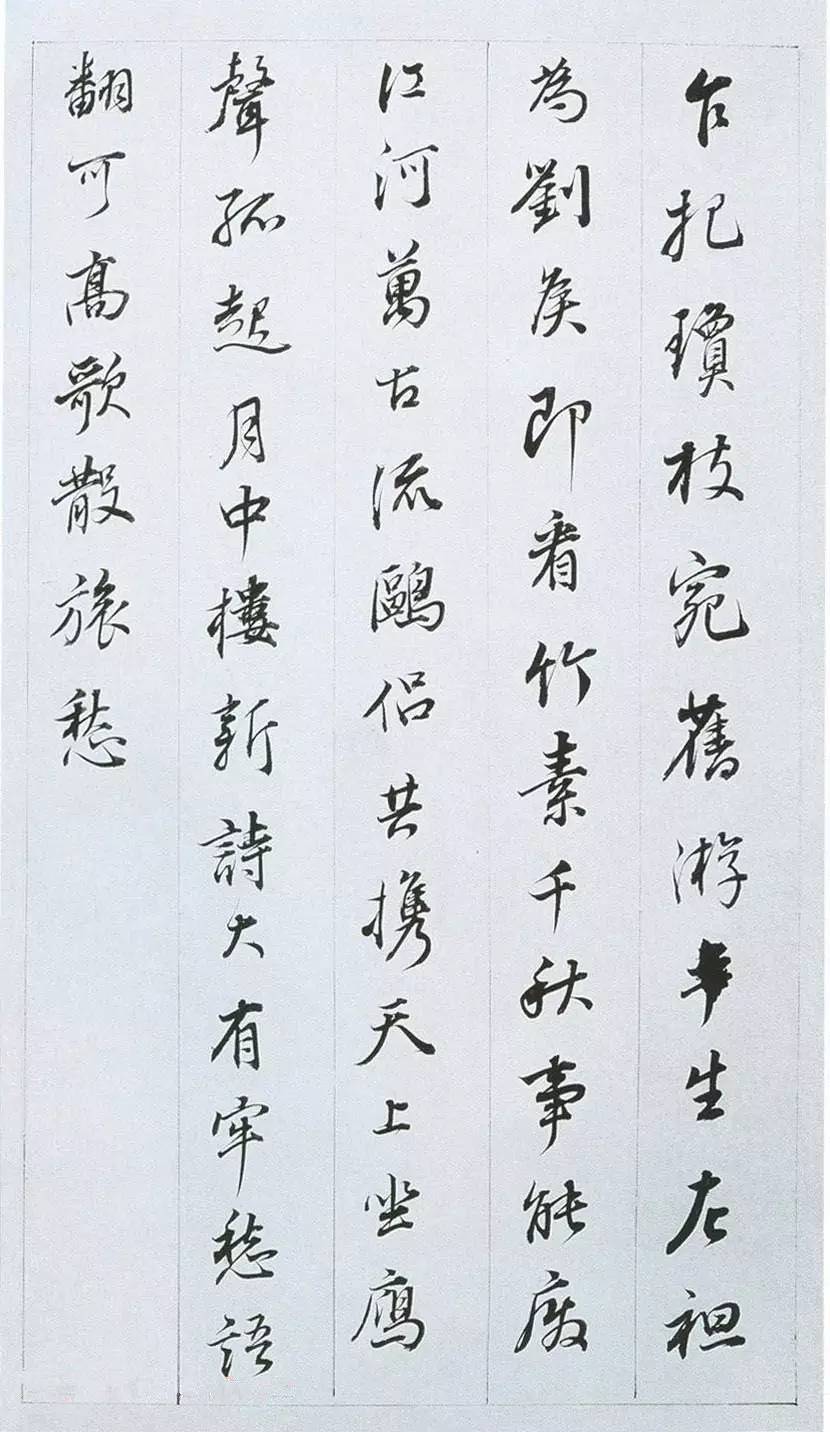 乍把瓊枝宛舊游半生左袒
為劉矦即看竹素千秋事能廢
江河萬古流鷗侣共攜天上坐鴈
聲孤起月中樓新詩大有牢愁語
翻可高歌散旅愁